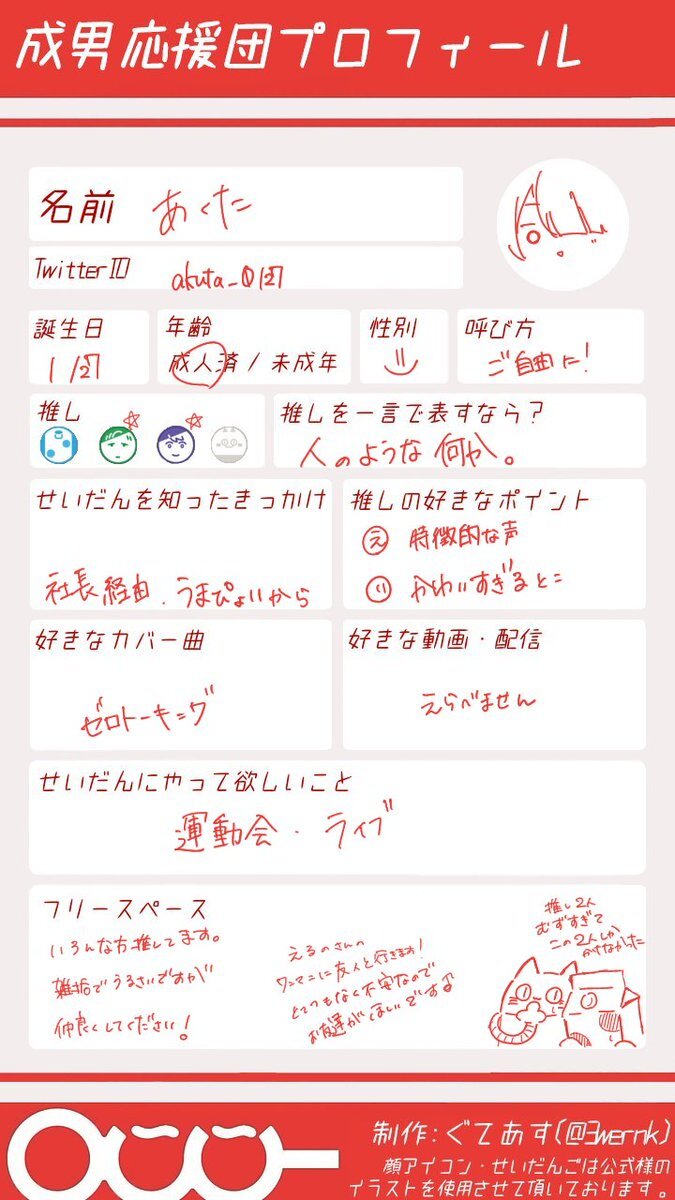 成男応援団プロフィール
名前 あくた
TwitterID akuta_0127
誕生日
1/27
年齢
成人済 / 未成年
性別
呼び方
ご自由に!
推し
推しを一言で表すなら?
人のような何か。
せいだんを知ったきっかけ
社長経由.うまぴょいから
推しの好きなポイント
え 特徴的な声
かわいすぎるとこ
好きなカバー曲
ゼロトーキング
好きな動画・配信
えらべません
せいだんにやって欲しいこと
運動会・ライブ
フリースペース
いろんな方推してます。
雑垢でうるさいですが
仲良くしてください!
えるのさんの
ワンマンに友人と行きます!
とてつもなく不安なので
お友達がほしいですよ
推し2人
むずすぎて
この2人しか
かけなかった
制作:ぐてあす(@3wernk)
顔アイコン・せいだんごは公式様の
イラストを使用させて頂いております。